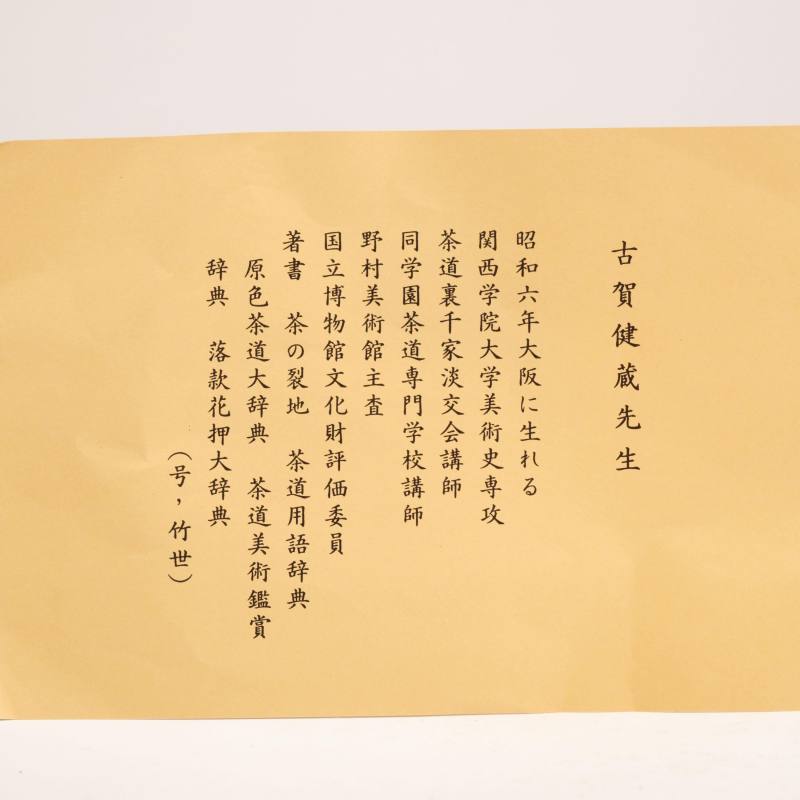 古賀健蔵先生
昭和六年大阪に生れる
関西学院大学美術史専攻
茶道裏千家淡交会講師
同学園茶道専門学校講師
野村美術館主査
国立博物館文化財評価委員
著書　茶の裂地　茶道用語辞典
原色茶道大辞典　茶道美術鑑賞
辞典　落款花押大辞典
（号，竹世）